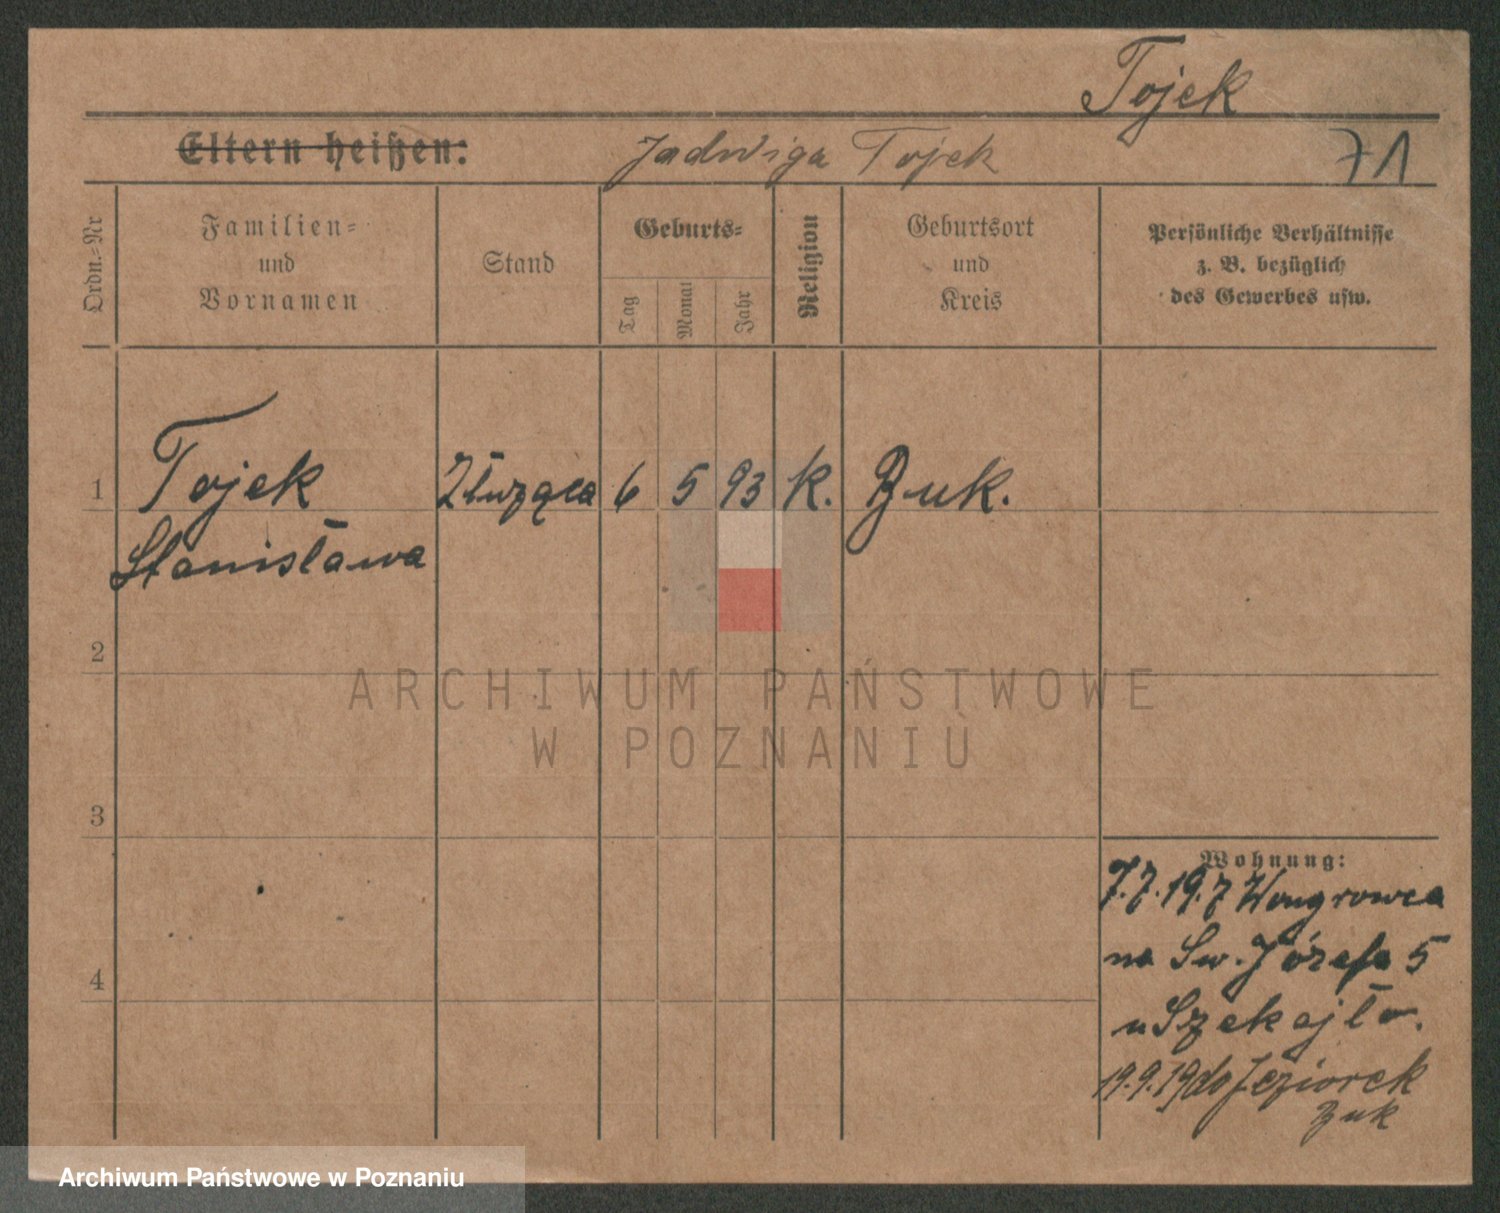 Tojek
Eltern heißen: Jadwiga Tojek 71
Ordn.-Nr
Familien-
und
Vornamen
Stand
Geburts-
Tag
Monat
Jahr
Religion
Geburtsort
und
Kreis
Persönliche Verhältnisse
z. B. bezüglich
des Gewerbes usw.
1 Tojek 6 5 93 k. Buk.
Stanisława
2
3
4
Wohnung:
7.7.19 z Wongrowca
na Św. Józefa 5
u Szekajło.
19.9.19 do Jeziorek
Buk
ARCHIWUM PAŃSTWOWE
W POZNANIU
Archiwum Państwowe w Poznaniu